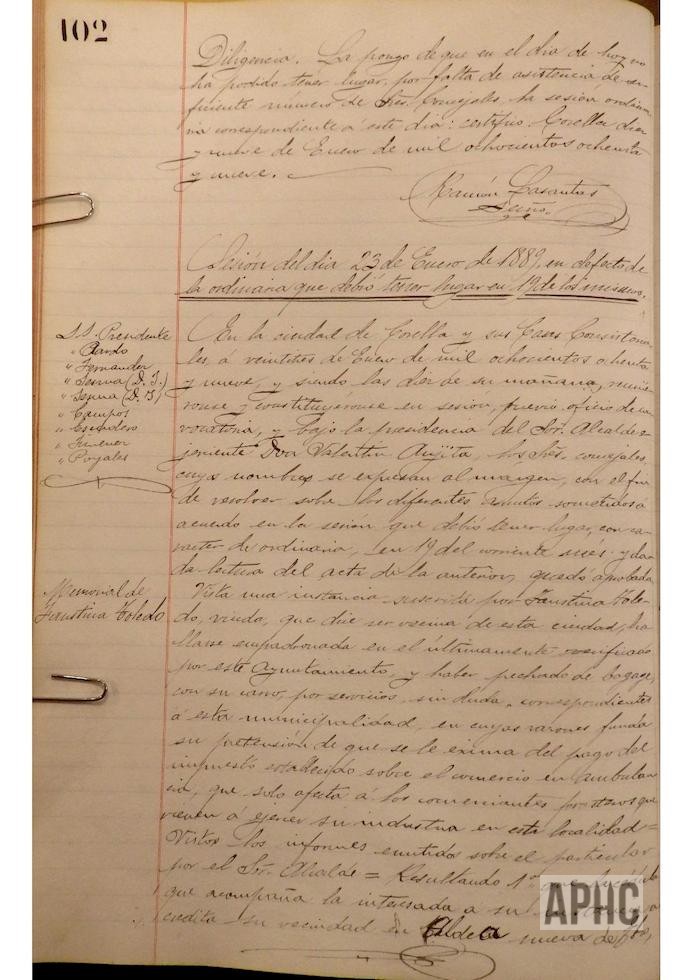 102
Diligencia. La pongo de que en el dia de hoy no
ha podido tener lugar, por falta de asistencia de su-
ficiente número de Sres. Concejales, la sesión ordina-
ria correspondiente á este dia: certifico. Corella diez
y nueve de Enero de mil ochocientos ochenta
y nueve.
Ramón Lasantas
Sesión del dia 23 de Enero de 1889, en defecto de
la ordinaria que debió tener lugar en 19 de los mismos.
S.S. Presidente
" Pardo
" Fernandez
" Senna (D. J.)
" Senna (D. B)
" Campos
" Escudero
" Jimenez
" Poyales
En la ciudad de Corella y sus Casas Consistoria-
les, á veintitres de Enero de mil ochocientos ochenta
y nueve, y siendo las diez de su mañana, reunie-
ronse y constituyéronse en sesión, previo oficio de con-
vocatoria, y bajo la presidencia del Sor. Alcalde
Teniente Don Valentin los Sres. concejales,
cuyos nombres se expresan al margen, con el fin
de resolver sobre los diferentes asuntos sometidos á
acuerdo en la sesión que debió tener lugar, con ca-
racter de ordinaria, en 19 del corriente mes: y da-
da lectura del acta de la anterior, quedó aprobada.
Memorial de
Faustina Toledo
Vista una instancia suscrita por Faustina Tole-
do, viuda, que dice ser vecina de esta ciudad, ha-
llarse empadronada en el últimamente verificado
por este Ayuntamiento, y haber pechado de bagage,
con su carro, por servicios, sin duda, correspondientes
á esta municipalidad, en cuyas razones funda
su pretensión de que se le exima del pago del
impuesto establecido sobre el comercio en ambulan-
cia, que solo afecta á los comerciantes forasteros que
vienen á ejercer su industria en esta localidad =
Vistos los informes emitidos sobre el particular
por el Sor. Alcalde = Resultando 1º que la cédula
que acompaña la interesada a su
credita su vecindad en Aldea nueva de Ebro,
APHC